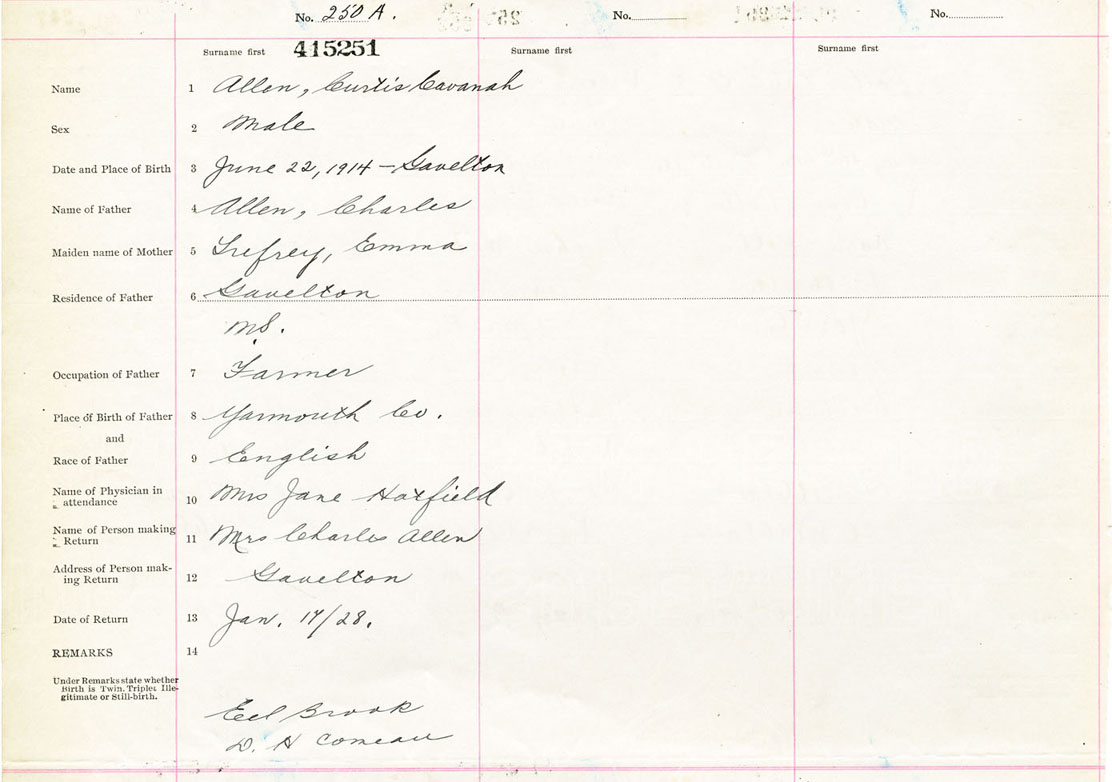 No. 250 A.
No.
No.
Surname first 415251
Surname first
Surname first
Name 1 Allen, Curtis Cavanah
Sex 2 Male
Date and Place of Birth 3 June 22, 1914 — Gavelton
Name of Father 4 Allen, Charles
Maiden name of Mother 5 Trefrey, Emma
Residence of Father 6 Gavelton
Occupation of Father 7 Farmer
Place of Birth of Father 8 Yarmouth Co.
and
Race of Father 9 English
Name of Physician in
attendance 10 Mrs Jane Hatfield
Name of Person making
Return 11 Mrs Charles Allen
Address of Person mak-
ing Return 12 Gavelton
Date of Return 13 Jan. 17/28.
REMARKS 14
Under Remarks state whether
Birth is Twin, Triplet Ille-
gitimate or Still-birth.
Eel Brook
D. H Comeau